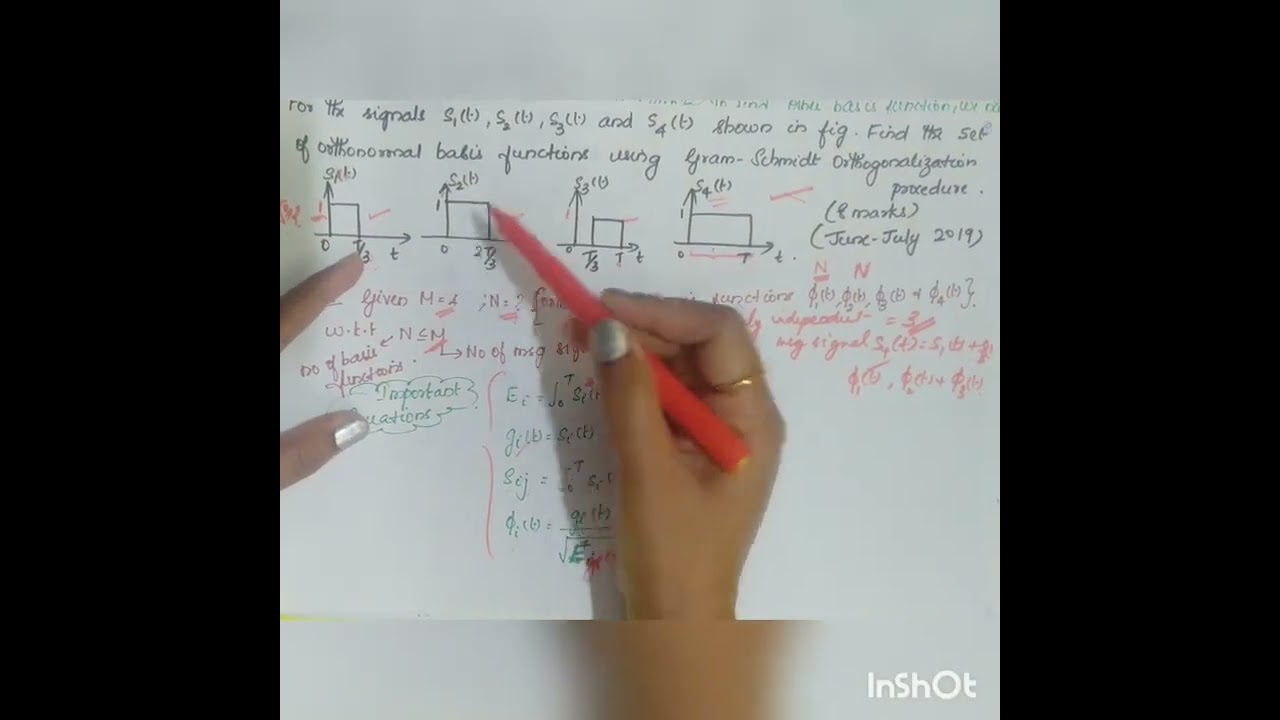 For the signals S1(t), S2(t), S3(t) and S4(t) shown in fig. Find the set
of orthonormal basis functions using Gram-Schmidt Orthogonalization
procedure.
(8 marks)
(June-July 2019)
S1(t)
1
0
T/3
t
S2(t)
1
0
2T/3
S3(t)
1
T/3
T
t
S4(t)
1
0
T
t.
Given M=4 ; N=?
functions {ϕ1(t), ϕ2(t), ϕ3(t) & ϕ4(t)}.
N N
independent = 3
w.k.t N≤M
msg signal S4(t)=S1(t)+
no of basis functions.
No of msg
ϕ1(t), ϕ2(t) & ϕ3(t)
Important
Equations
Ei = ∫0^T Si(t
gi(t) = Si(t)
Sij = ∫0^T Si(
ϕi(t) = gi(t)